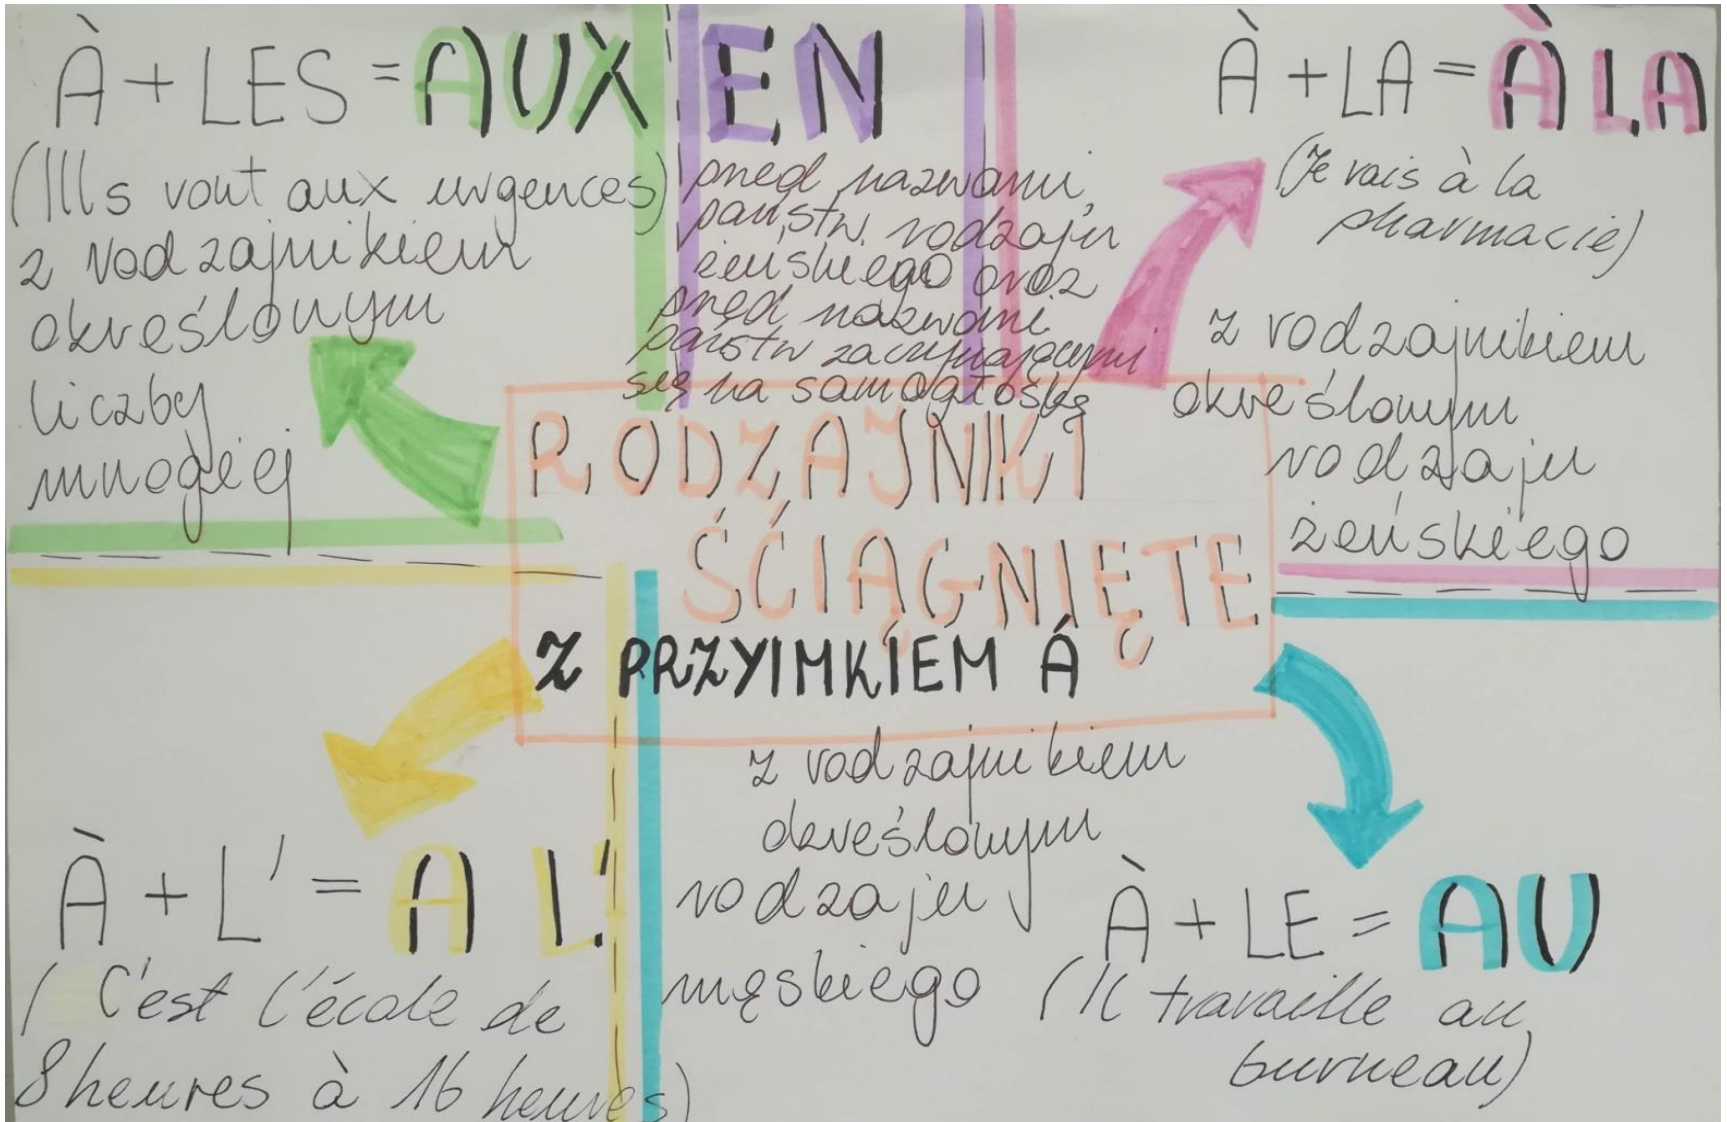 À + LES = AUX
(Ills vont aux urgences)
z rodzajnikiem
określonym
liczby
mnogiej
EN
przed nazwami
państw rodzaju
żeńskiego oraz
przed nazwami
państw zaczynającymi
się na samogłoskę
À + LA = À LA
(Je vais à la
pharmacie)
z rodzajnikiem
określonym
rodzaju
żeńskiego
RODZAJNIKI
ŚCIĄGNIĘTE
Z PRZYIMKIEM Á
À + L' = A L'
( C'est l'école de
8 heures à 16 heures)
z rodzajnikiem
określonym
rodzaju
męskiego
À + LE = AU
(Il travaille au
burneau)